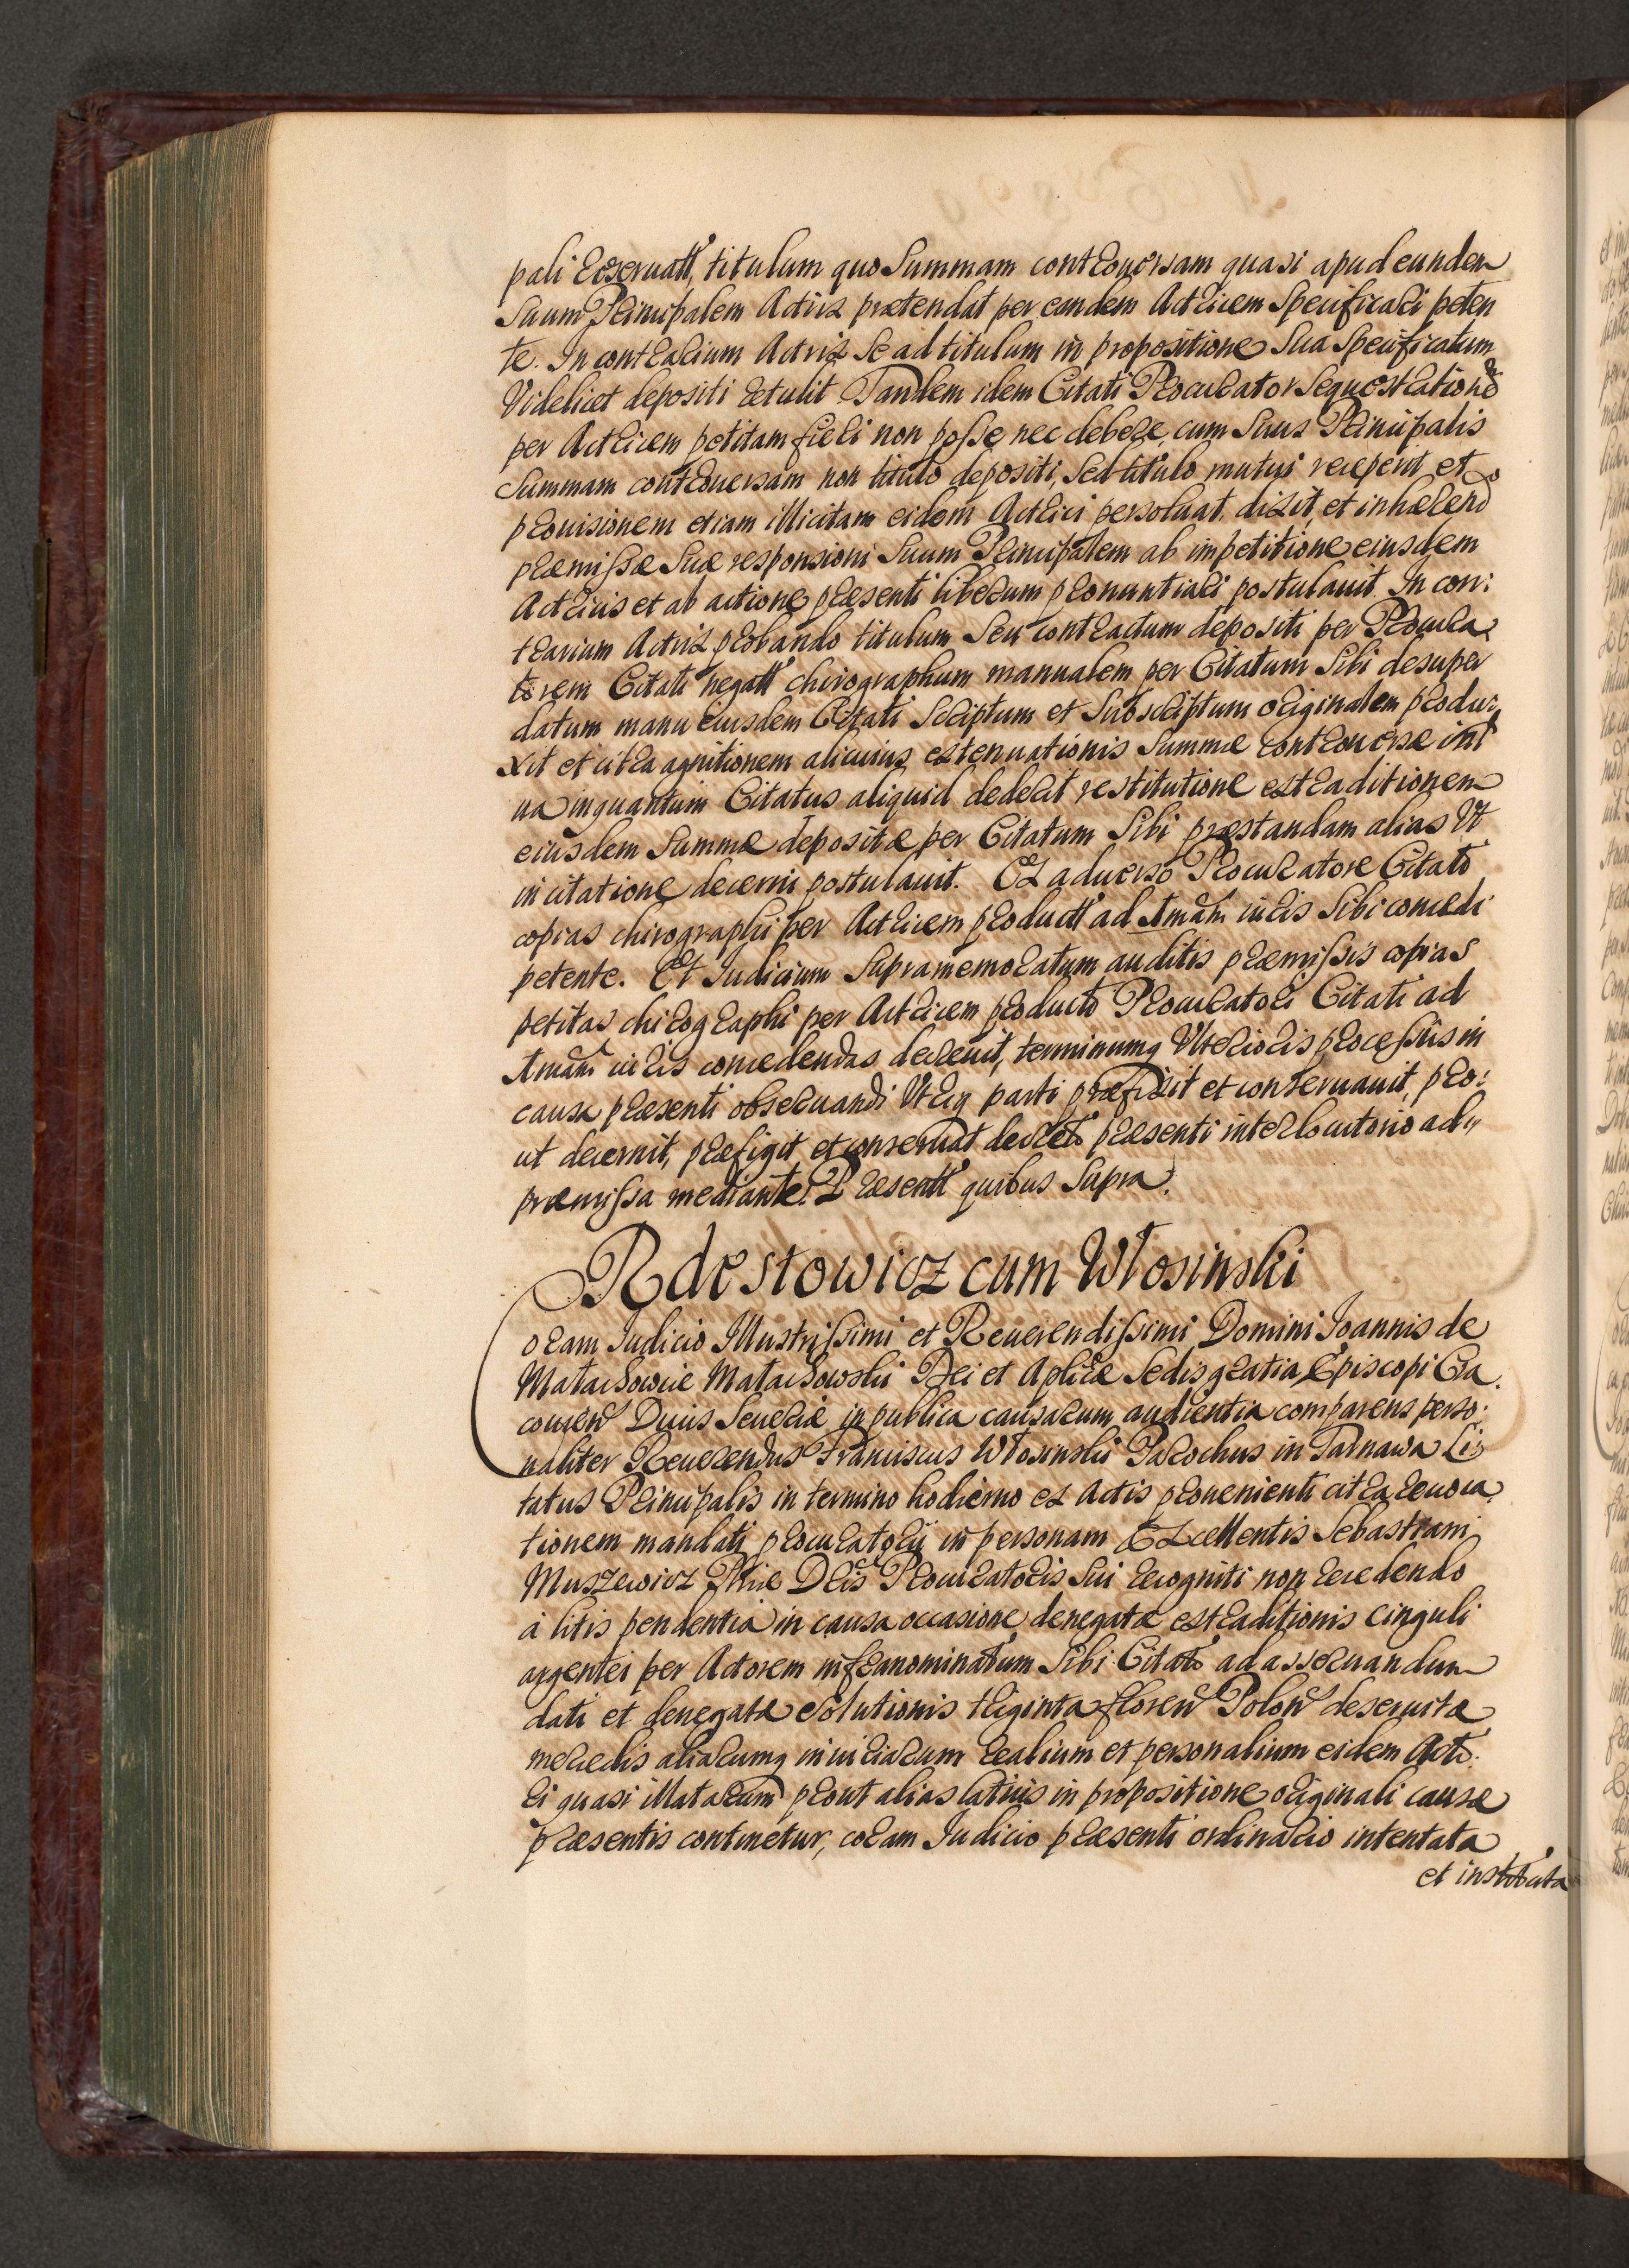 pali reseruatt, titulum quo Summam controuersam quasi apud eundem
Suum Principalem Actrix prætendat per eandem Actricem Specificari peten
te. In contrarium Actrix Se ad titulum in propositione Sua Specificatum
Videlicet depositi retulit Tandem idem Citati Procurator Sequestratione
per Actricem petitam fieri non posse nec debere, cum Suus Principalis
Summam controuersam non titulo depositi, Sed titulo mutui receperit et
prouisionem etiam illicitam eidem Actrici persoluat, dixit, et inhærendo
præmissæ Suæ responsioni Suum Principalem ab impetitione eiusdem
Actricis et ab actione præsenti liberum pronuntiari postulauit. In con:
trarium Actrix probando titulum Seu contractum depositi per Procura
torem Citati negatt chirographum manualem per Citatum Sibi desuper
datum manu eiusdem Citati Scriptum et Subscriptum originalem produ:
xit et citra agnitionem alicuius extenuationis Summæ controuersæ
na inquantum Citatus aliquid dederit restitutione extraditionem
eiusdem Summæ depositæ per Citatum Sibi præstandam alias Vt
in citatione decerni postulauit. Ex aduerso Procuratore Citati
copias chirographi per Actricem productt ad Amam iuris Sibi concedi
petente. Et Iudicium Supramemoratum auditis præmissis copias
petitas chirographi per Actricem producti Procuratori Citati ad
Amam iuris concedendas decreuit, terminumq Vlterioris processus in
causa præsenti obseruandi Vtriq parti præfixit et conseruauit, pro:
ut decernit, præfigit et conseruat decreto præsenti interlocutorio ad
præmissa mediante. Præsentt quibus Supra.
Rdestowicz cum Włosinski
Coram Iudicio Illustrissimi et Reuerendissimi Domini Ioannis de
Małachowice Małachowski Dei et Aplicæ Sedis gratia Episcopi Cra
couien Ducis Seueriæ in publica causarum audientia comparens perso:
naliter Reuerendus Franciscus Włosinski Parochus in Tarnawa Ci
tatus Principalis in termino hodierno ex Actis proueniente citra reuoca
tionem mandati procuratorij in personam Excellentis Sebastiani
Muszewicz Phiæ Dris Procuratoris Sui recogniti non recedendo
à litis pendentia in causa occasione denegatæ extraditionis cinguli
argentei per Actorem infranominatum Sibi Citato ad asseruandum
dati et denegatæ Solutionis triginta floren Polon deseruitæ
mercedis aliarumq iniuriarum realium et personalium eidem Acto:
ri quasi illatarum prout alias latius in propositione originali causæ
præsentis continetur, coram Iudicio præsenti ordinario intentata
et instituta